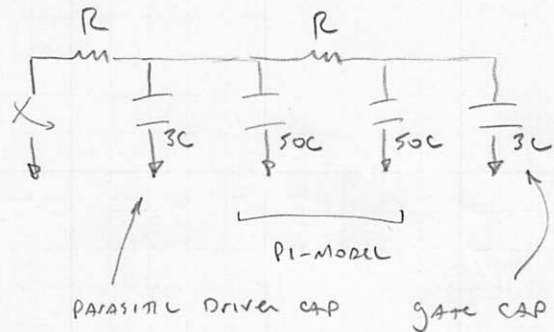 R R
3C 50C 50C 3C
PI-MODEL
PARASITIC DRIVER CAP gATE CAP